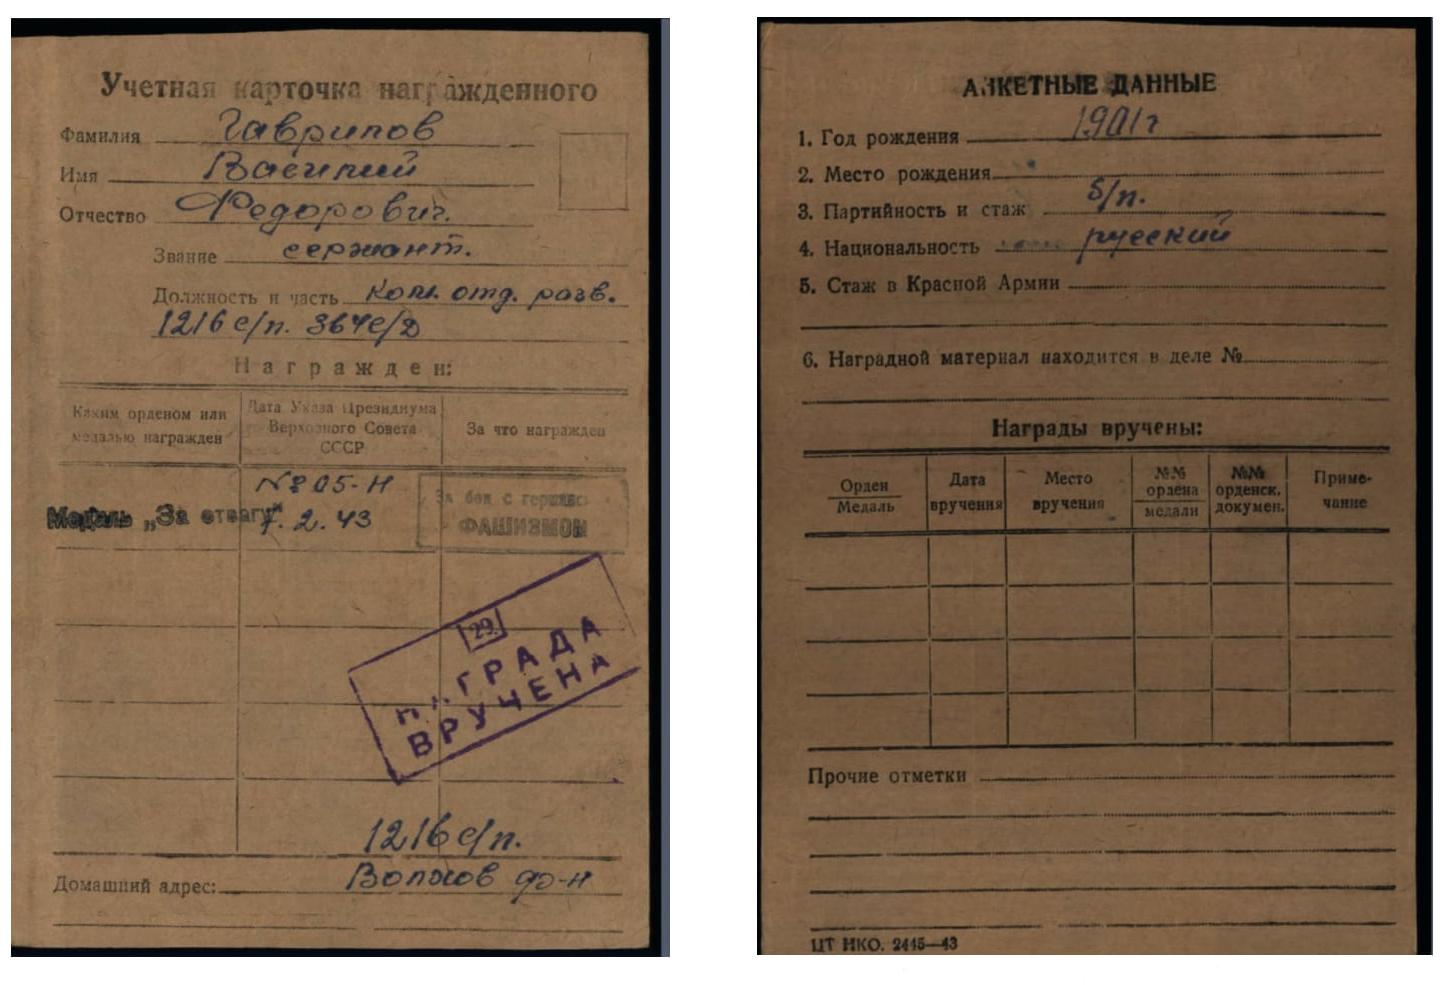 Учетная карточка награжденного
Фамилия Гаврилов
Имя Василий
Отчество Федорович.
Звание сержант.
Должность и часть Ком. отд. разв.
1216 с/п. 364 с/д
Награжден:
Каким орденом или медалью награжден
Дата Указа Президиума Верховного Совета СССР
За что награжден
Медаль „За отвагу“
№ 05-Н
7.2.43
За бои с германс
ФАШИЗМОМ
29.
НАГРАДА
ВРУЧЕНА
1216 с/п.
Домашний адрес: Волхов ф-н
АНКЕТНЫЕ ДАННЫЕ
1. Год рождения 1901 г
2. Место рождения
3. Партийность и стаж б/п.
4. Национальность русский
5. Стаж в Красной Армии
6. Наградной материал находится в деле №
Награды вручены:
Орден
Медаль
Дата вручения
Место вручения
№№ ордена
медали
№№ орденск. докумен.
Приме-
чание
Прочие отметки
ЦТ НКО. 2445—43